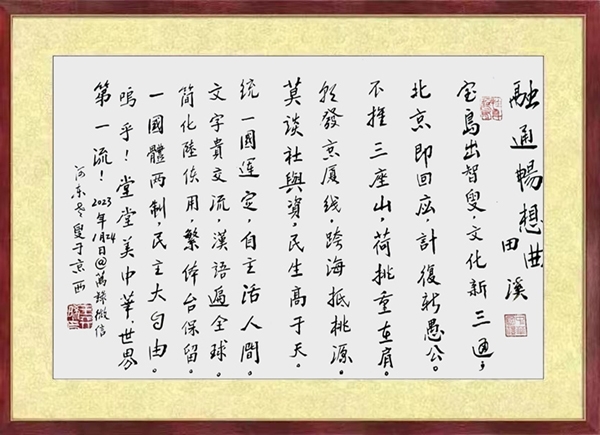 融通暢想曲
田溪
宝島出智叟，文化新三通，
北京即回应，計復新愚公。
不推三座山，荷挑重在肩。
能發京厦线，跨海抵桃源。
莫谈社與資，民生高于天。
統一國運定，自主活人間。
文字貴交流，漢語遍全球。
简化陸使用，繁体台保留。
一國體两制，民主大自由。
嗚乎！堂堂美中華，世界
第一流！
2023年1月24日@萬祿微信
河东老叟于京西